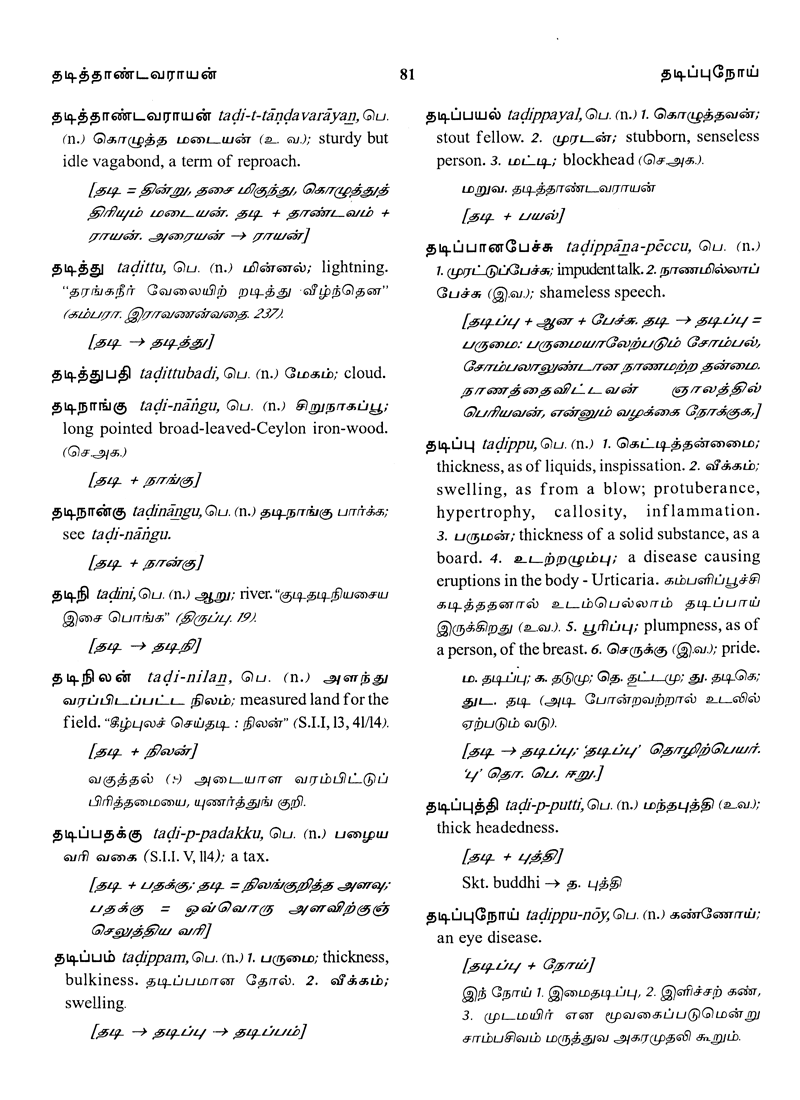 தடித்தாண்டவராயன்
81
தடிப்புநோய்
தடித்தாண்டவராயன் taḍi-t-tāṇḍavarāyaṉ, பெ.
(n.) கொழுத்த மடையன் (உ. வ.); sturdy but
idle vagabond, a term of reproach.
[தடி = தின்று, தசை மிகுந்து, கொழுத்துத்
திரியும் மடையன். தடி + தாண்டவம் +
ராயன். அரையன் → ராயன்]
தடித்து taḍittu, பெ. (n.) மின்னல்; lightning.
“தரங்கநீர் வேலையிற் றடித்து வீழ்ந்தென”
(கம்பரா. இராவணன்வதை. 237).
[தடி → தடித்து]
தடித்துபதி taḍittubadi, பெ. (n.) மேகம்; cloud.
தடிநாங்கு taḍi-nāṅgu, பெ. (n.) சிறுநாகப்பூ;
long pointed broad-leaved-Ceylon iron-wood.
(செ.அக.)
[தடி + நாங்கு]
தடிநான்கு taḍināṉgu, பெ. (n.) தடிநாங்கு பார்க்க;
see taḍi-nāṅgu.
[தடி + நான்கு]
தடிநி taḍini, பெ. (n.) ஆறு; river. “குடிதடிநியசைய
இசை பொங்க” (திருப்பு. 19).
[தடி → தடிநி]
தடிநிலன் taḍi-nilaṉ, பெ. (n.) அளந்து
வரப்பிடப்பட்ட நிலம்; measured land for the
field. “கீழ்புலச் செய்தடி : நிலன்” (S.I.I, 13, 41/14).
[தடி + நிலன்]
வகுத்தல் (:-) அடையாள வரம்பிட்டுப்
பிரித்தமையை, யுணர்த்துங் குறி.
தடிப்பதக்கு taḍi-p-padakku, பெ. (n.) பழைய
வரி வகை (S.I.I. V, 114); a tax.
[தடி + பதக்கு; தடி = நிலங்குறித்த அளவு;
பதக்கு = ஒவ்வொரு அளவிற்குஞ்
செலுத்திய வரி]
தடிப்பம் taḍippam, பெ. (n.) 1. பருமை; thickness,
bulkiness. தடிப்பமான தோல். 2. வீக்கம்;
swelling.
[தடி → தடிப்பு → தடிப்பம்]
தடிப்பயல் taḍippayal, பெ. (n.) 1. கொழுத்தவன்;
stout fellow. 2. முரடன்; stubborn, senseless
person. 3. மட்டி; blockhead (செ.அக.).
மறுவ. தடித்தாண்டவராயன்
[தடி + பயல்]
தடிப்பானபேச்சு taḍippāṉa-pēccu, பெ. (n.)
1. முரட்டுப்பேச்சு; impudent talk. 2. நாணமில்லாப்
பேச்சு (இ.வ.); shameless speech.
[தடிப்பு + ஆன + பேச்சு. தடி → தடிப்பு =
பருமை: பருமையாலேற்படும் சோம்பல்,
சோம்பலாலுண்டான நாணமற்ற தன்மை.
நாணத்தைவிட்டவன் ஞாலத்தில்
பெரியவன், என்னும் வழக்கை நோக்குக,]
தடிப்பு taḍippu, பெ. (n.) 1. கெட்டித்தன்மை;
thickness, as of liquids, inspissation. 2. வீக்கம்;
swelling, as from a blow; protuberance,
hypertrophy, callosity, inflammation.
3. பருமன்; thickness of a solid substance, as a
board. 4. உடற்றழும்பு; a disease causing
eruptions in the body - Urticaria. கம்பளிப்பூச்சி
கடித்ததனால் உடம்பெல்லாம் தடிப்பாய்
இருக்கிறது (உ.வ.). 5. பூரிப்பு; plumpness, as of
a person, of the breast. 6. செருக்கு (இ.வ.); pride.
ம. தடிப்பு; க. தடுமு; தெ. தட்டமு; து. தடிகெ;
துட. தடி (அடி போன்றவற்றால் உடலில்
ஏற்படும் வடு).
[தடி → தடிப்பு; ‘தடிப்பு’ தொழிற்பெயர்.
‘பு’ தொ. பெ. ஈறு.]
தடிப்புத்தி taḍi-p-putti, பெ. (n.) மந்தபுத்தி (உவ.);
thick headedness.
[தடி + புத்தி]
Skt. buddhi → த. புத்தி
தடிப்புநோய் taḍippu-nōy, பெ. (n.) கண்ணோய்;
an eye disease.
[தடிப்பு + நோய்]
இந் நோய் 1. இமைதடிப்பு, 2. இளிச்சற் கண்,
3. முடமயிர் என மூவகைப்படுமென்று
சாம்பசிவம் மருத்துவ அகரமுதலி கூறும்.